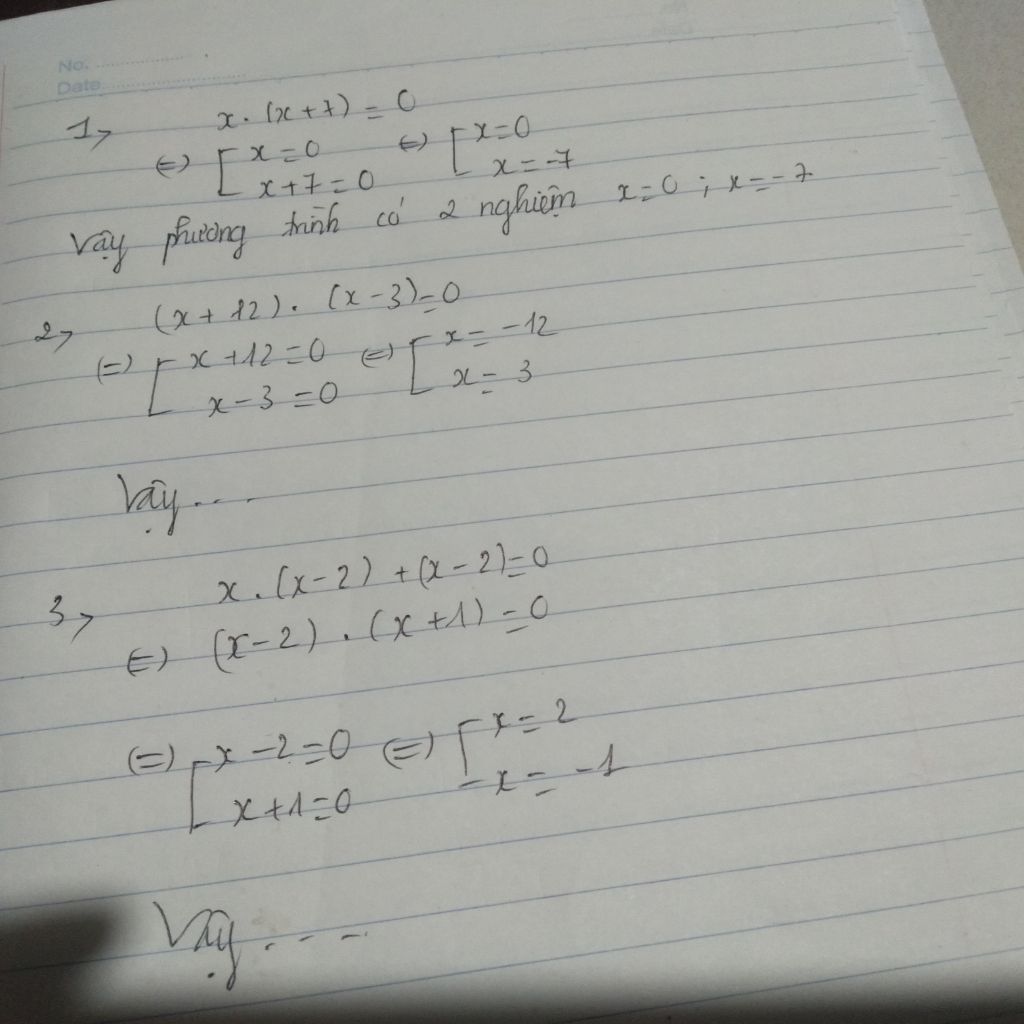 No.
Date
1, x.(x+7)=0
(=) [ x=0 (=) [ x=0
x+7=0 x=-7
Vậy phương trình có 2 nghiệm x=0 ; x=-7
2, (x+12).(x-3)=0
(=) [ x+12=0 (=) [ x=-12
x-3=0 x=3
Vậy...
3, x.(x-2)+(x-2)=0
(=) (x-2).(x+1)=0
(=) [ x-2=0 (=) [ x=2
x+1=0 x=-1
Vậy....